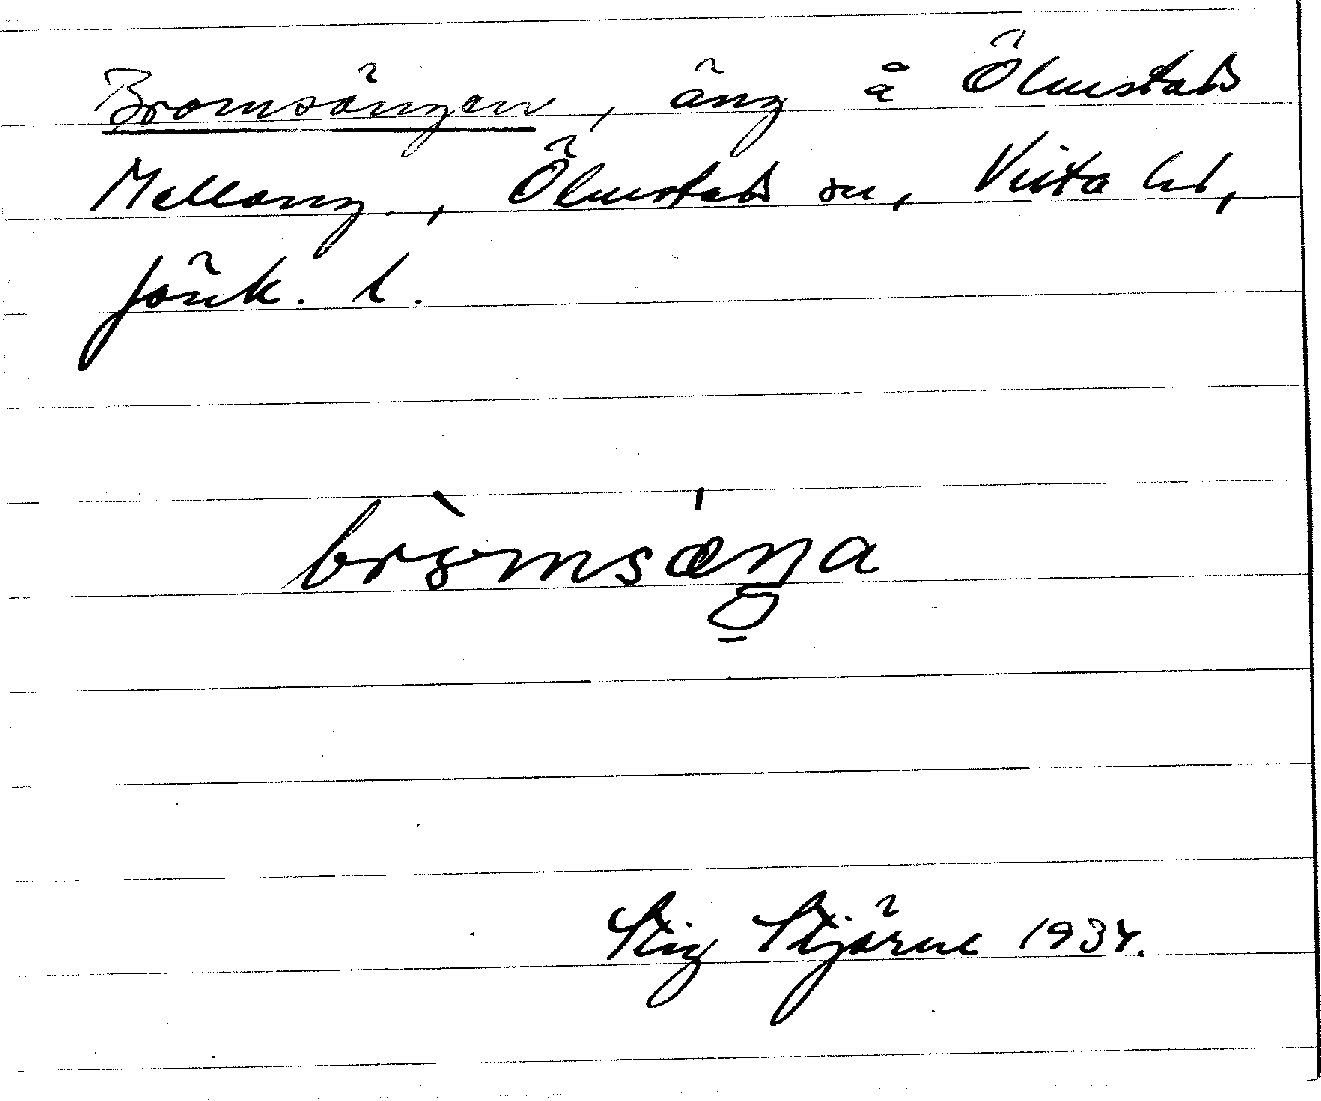 Bromsängen, äng å Ölmstads
Mellang., Ölmstads sn, Vista hd,
Jönk. l.
bròmsæ̀ŋa
Stig Stjärne 1934.